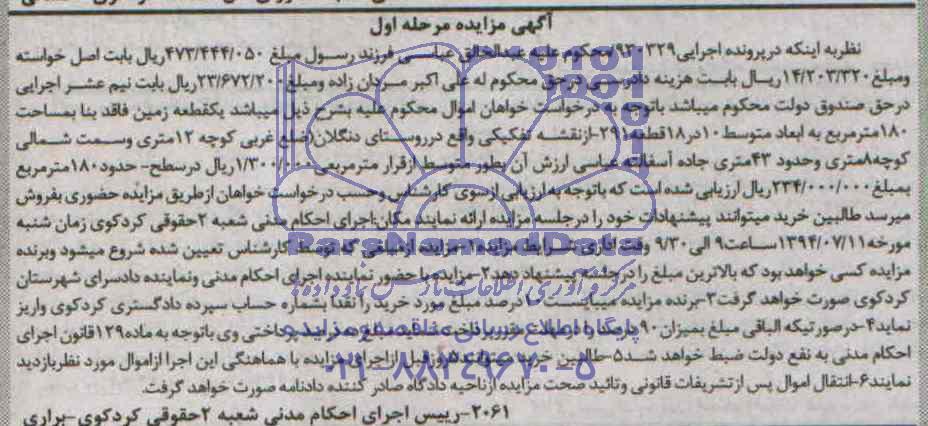 آگهی مزایده مرحله اول
نظر به اینکه در پرونده اجرایی ۹۳۰۳۲۹ محکوم علیه عبدالخالق عباسی فرزند رسول مبلغ ۴۷۳/۴۴۴/۰۵۰ ریال بابت اصل خواسته
ومبلغ ۱۴/۲۰۳/۳۲۰ ریال بابت هزینه دادرسی در حق محکوم له علی اکبر مردان زاده ومبلغ ۲۳/۶۷۲/۲۰۰ ریال بابت نیم عشر اجرایی
درحق صندوق دولت محکوم میباشد باتوجه به درخواست خواهان اموال محکوم علیه بشرح ذیل میباشد یکقطعه زمین فاقد بنا بمساحت
۱۸۰مترمربع به ابعاد متوسط ۱۰در۱۸قطعه۲۹۱-ازنقشه تفکیکی واقع درروستای دنگلان(ضلع غربی کوچه ۱۲متری وسمت شمالی
کوچه۸متری وحدود ۴۳متری جاده آسفالته عباسی ارزش آن بطور متوسط ازقرار مترمربعی ۱/۳۰۰/۰۰۰ریال درسطح- حدود۱۸۰مترمربع
بمبلغ ۲۳۴/۰۰۰/۰۰۰ریال ارزیابی شده است که باتوجه به ارزیابی ازسوی کارشناس وحسب درخواست خواهان ازطریق مزایده حضوری بفروش
میرسد طالبین خرید میتوانند پیشنهادات خود را درجلسه مزایده ارائه نمایند مکان:اجرای احکام مدنی شعبه ۲حقوقی کردکوی زمان شنبه
مورخه۱۳۹۴/۰۷/۱۱ساعت۹ الی ۹/۳۰ وقت اداری شرایط مزایده:۱-مزایده ازمبلغی که توسط کارشناس تعیین شده شروع میشود وبرنده
مزایده کسی خواهد بود که بالاترین مبلغ را درجلسه پیشنهاد دهد۲-مزایده با حضور نماینده اجرای احکام مدنی ونماینده دادسرای شهرستان
کردکوی صورت خواهد گرفت۳-برنده مزایده میبایست ۱۰درصد مبلغ مورد خرید را نقدا بشماره حساب سپرده دادگستری کردکوی واریز
نماید۴-درصورتیکه الباقی مبلغ بمیزان ۹۰درصد را درمهلت مقرر تاخیر نماید مبلغ ده درصد پرداختی وی باتوجه به ماده۱۲۹قانون اجرای
احکام مدنی به نفع دولت ضبط خواهد شد۵-طالبین خرید میتوانند۵روزقبل ازاجرای مزایده با هماهنگی این اجرا ازاموال مورد نظربازدید
نمایند۶-انتقال اموال پس ازتشریفات قانونی وتائید صحت مزایده ازناحیه دادگاه صادر کننده دادنامه صورت خواهد گرفت.
۲۰۶۱-رییس اجرای احکام مدنی شعبه ۲حقوقی کردکوی-براری
ParsNamadData
مرکز فرآوری اطلاعات پارس نماد داده ها
پایگاه اطلاع رسانی مناقصه و مزایده
۰۲۱-۸۸۳۴۹۶۷۰-۵